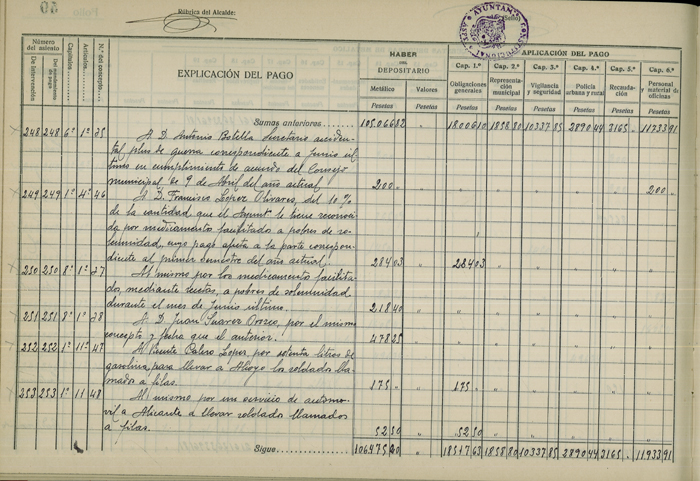 Rúbrica del Alcalde:
Sello:
AYUNTAMIENTO CONSTITUCIONAL
Número del asiento
De Intervención
De mandamiento de pago
Capítulos
Artículos
N.º del concepto
EXPLICACIÓN DEL PAGO
HABER DEL DEPOSITARIO
Metálico
Pesetas
Valores
Pesetas
APLICACIÓN DEL PAGO
Cap. 1.º
Obligaciones generales
Pesetas
Cap. 2.º
Representación municipal
Pesetas
Cap. 3.º
Vigilancia y seguridad
Pesetas
Cap. 4.º
Policía urbana y rural
Pesetas
Cap. 5.º
Recaudación
Pesetas
Cap. 6.º
Personal y material de oficinas
Pesetas
Sumas anteriores 105.066 82 " 18006 10 1858 80 10337 85 2890 44 3165 " 11733 91
248 248 6º 1º 25 A D. Antonio Botella Secretario acciden-
tal plus de guerra correspondiente a Junio úl-
timo en cumplimiento de acuerdo del Consejo
municipal de 9 de Abril del año actual 200 " 200 "
249 249 1º 4º 46 A D. Francisco López Olivares, del 10%
de la cantidad que el Ayunt.º le tiene reconoci-
da por medicamentos facilitados a pobres de so-
lemnidad, cuyo pago afecta a la parte correspon-
diente al primer semestre del año actual 284 03 284 03
250 250 8º 1º 27 Al mismo por los medicamentos facilita-
dos, mediante recetas, a pobres de solemnidad
durante el mes de Junio último. 218 40
251 251 8º 1º 28 A D. Juan Suarez Orozco, por el mismo
concepto y fecha que el anterior. 478 25
252 252 1º 11º 47 A Vicente Calero López, por setenta litros de
gasolina, para llevar a Alcoy los soldados lla-
mados a filas. 175 " 175 "
253 253 1º 11 48 Al mismo por un servicio de automó-
vil a Alicante a llevar soldados llamados
a filas. 52 50 52 50
Sigue 106475 00 18517 63 1858 80 10337 85 2890 44 3165 " 11933 91